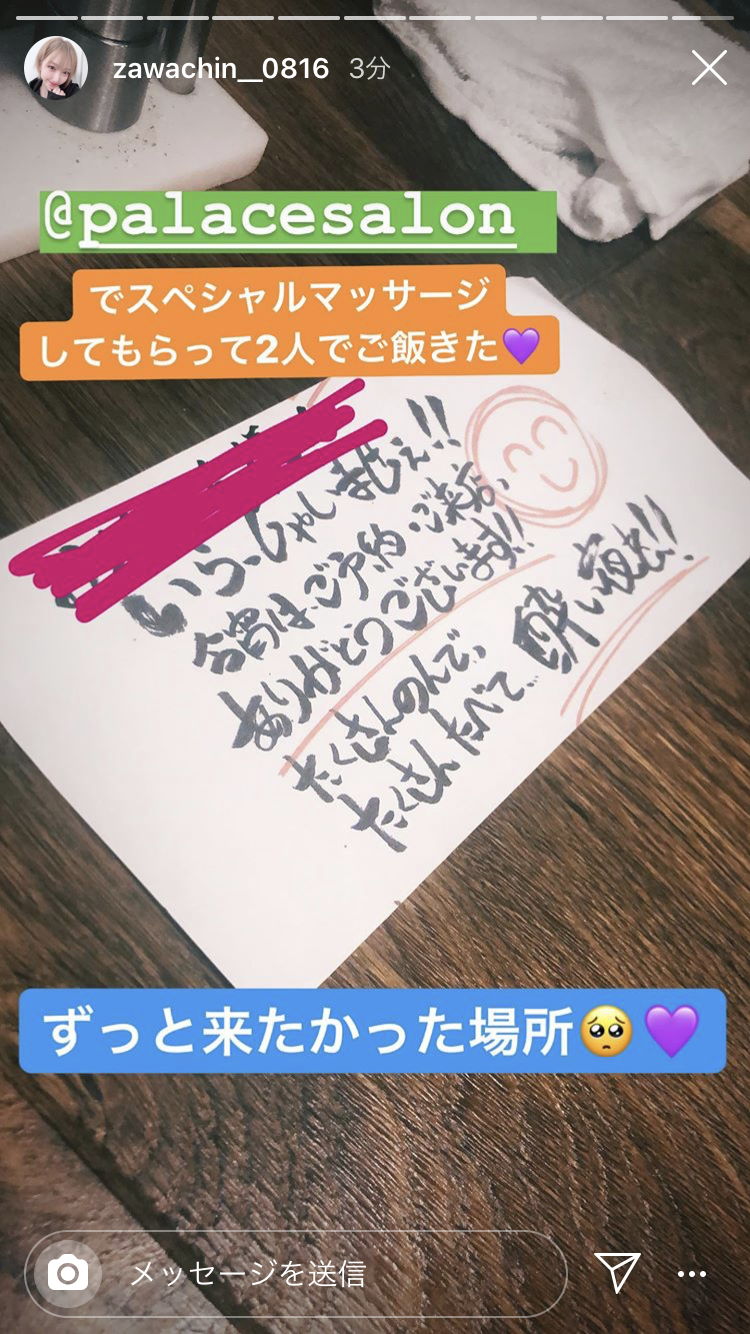 zawachin__0816 3分
@palacesalon
でスペシャルマッサージ
してもらって2人でご飯きた💜
いらっしゃいませぇ!!
今宵は、ご予約・ご来店、
ありがとうございます!!
たくさんのんで、
たくさんたべて、酔い夜を!!
ずっと来たかった場所🥺💜
メッセージを送信